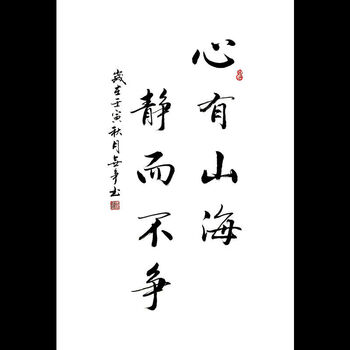 心有山海
静而不争
岁在壬寅秋月安平书